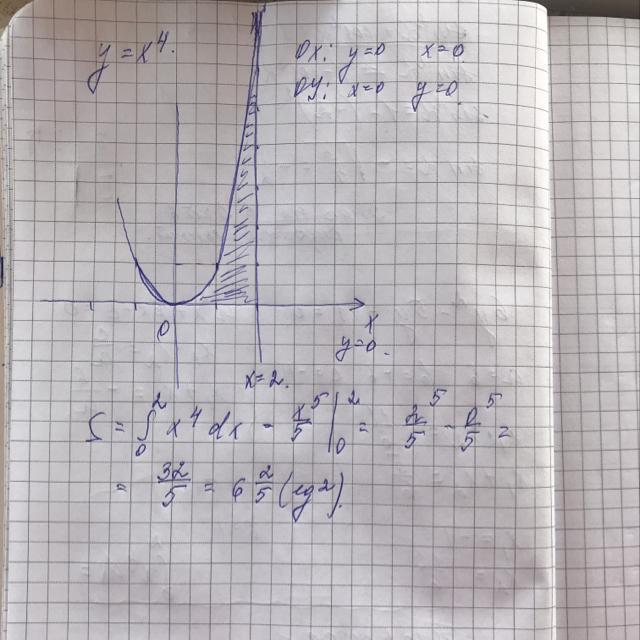 y = x⁴.
Ox: y=0 x=0
Oy: x=0 y=0
0
x
y=0.
x=2.
S = ∫₀² x⁴ dx - x⁵/5 |₀² = 2⁵/5 - 0⁵/5 =
= 32/5 = 6 2/5 (eg²)